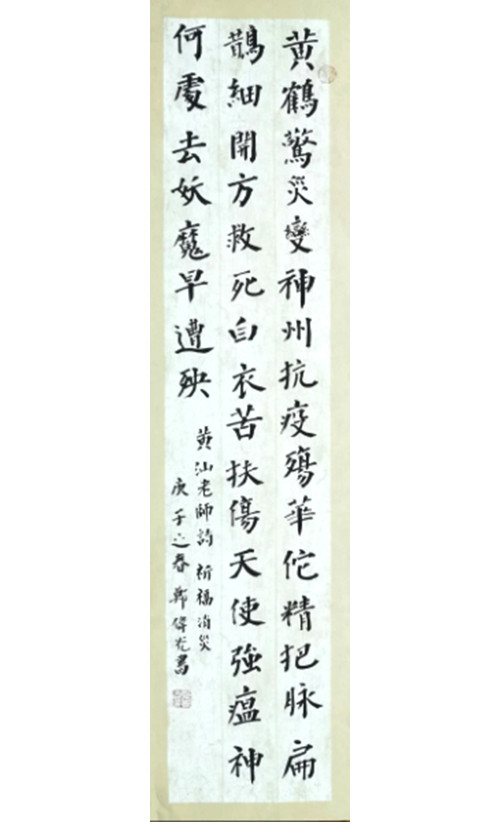 黄鶴驚災變神州抗疫殤華佗精把脉扁
鵲細開方救死白衣苦扶傷天使強瘟神
何處去妖魔早遭殃
黄汕老師詩 祈福消災
庚子之春 鄭偉光書